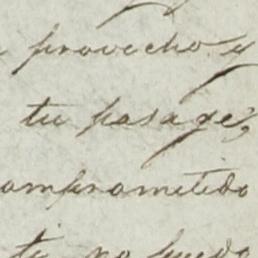 provecho y
tu pasage,
comprometido
ti no puedo